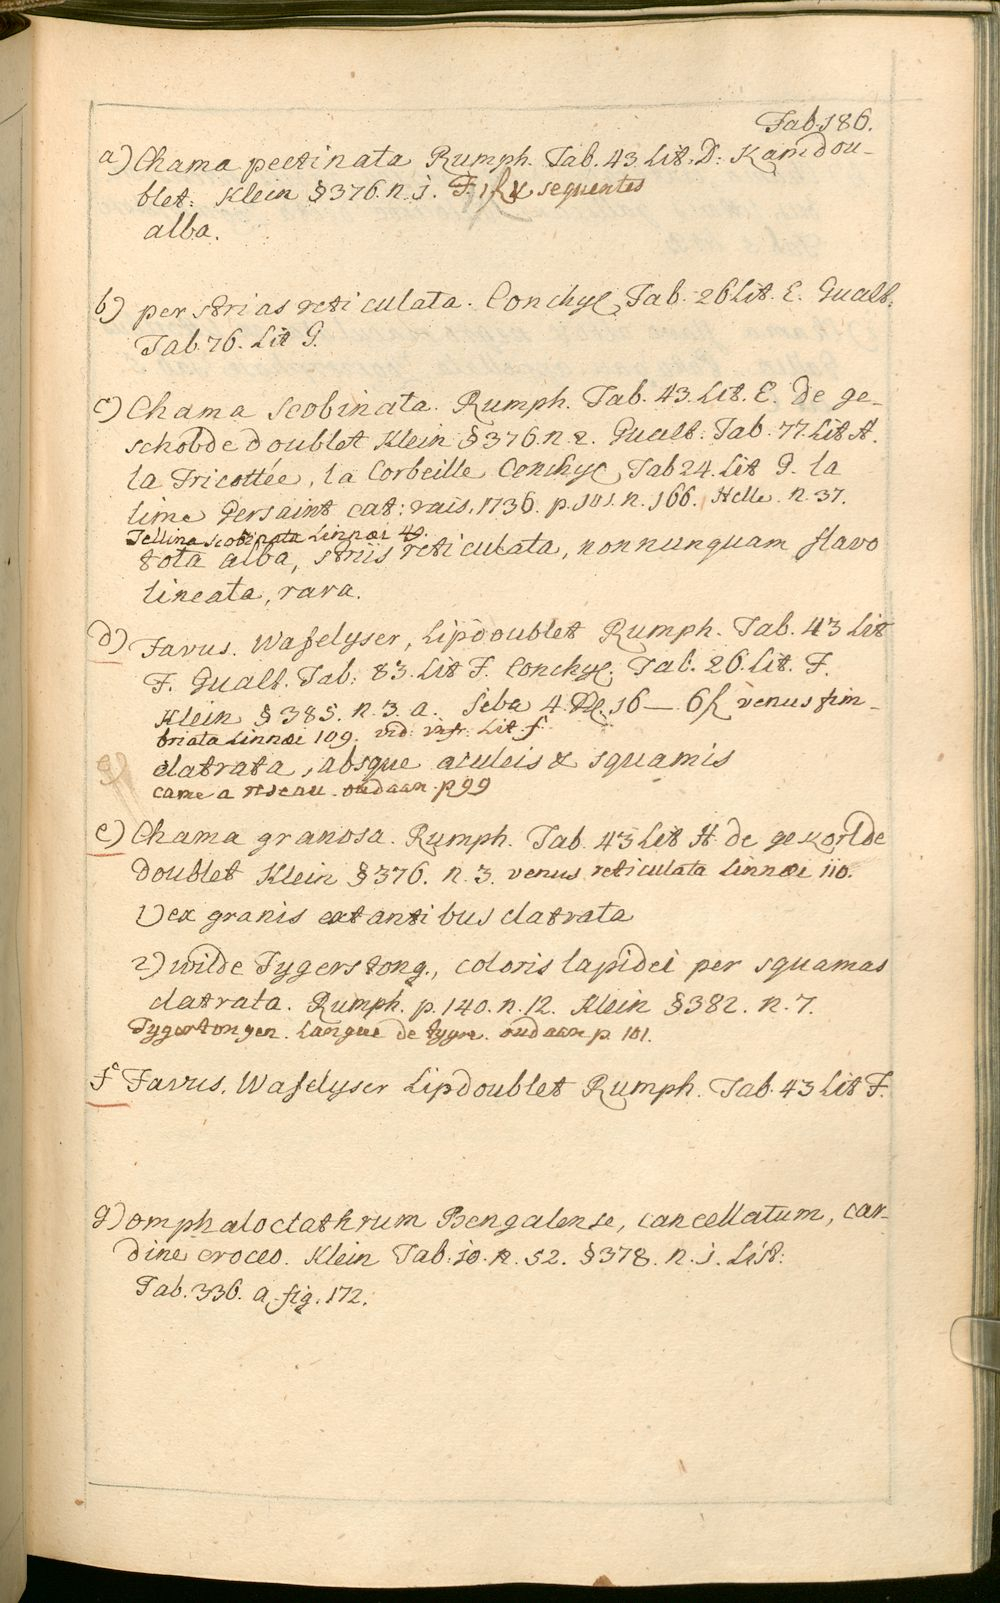 Tab. 186.
a) Chama pectinata Rumph. Tab. 43 Lit. D: Kamdou-
blet: Klein § 376. n. 1. sequentes
alba.
b) per strias reticulata. Conchyl. Tab. 26 Lit. E. Gualt.
Tab. 76. Lit G.
c) Chama scobinata. Rumph. Tab. 43. Lit. E. De ge-
schobde doublet Klein § 376. n. 2. Gualt. Tab. 77. Lit A.
la Tricottée, la Corbeille Conchyl. Tab 24. Lit G. la
lime Gersaint cat: rais. 1736. p. 101. n. 166. Helle. n. 37.
Tellina scobinata Linnæi 40.
tota alba, striis reticulata, nonnunquam flavo
lineata, rara.
d) Favus. Wafelyser, Lipdoublet Rumph. Tab. 43 Lit
F. Gualt. Tab: 83. Lit F. Conchyl. Tab. 26. Lit. F.
Klein § 385. n. 3. a. Seba 4. Dl. 16 — venus fim-
briata Linnæi 109. vid: infr. Lit. f.
clatrata, absque aculeis & squamis
came a reseau. oudaan. p 99
e) Chama granosa. Rumph. Tab. 43 Lit H. de gekorlde
doublet Klein § 376. n. 3. venus reticulata Linnæi 110.
1) ex granis extantibus clatrata
2) wilde Tygerstong., coloris lapidei per squamas
clatrata. Rumph. p. 140. n. 12. Klein § 382. n. 7.
Tygertongen. Langue de tygre. oudaan p. 101.
f Favus. Wafelyser Lipdoublet Rumph. Tab. 43 Lit F.
g) omphaloclathrum Bengalense, cancellatum, car-
dine croceo. Klein Tab: 10. n. 52. § 378. n. 1. List:
Tab. 336. a fig. 172.